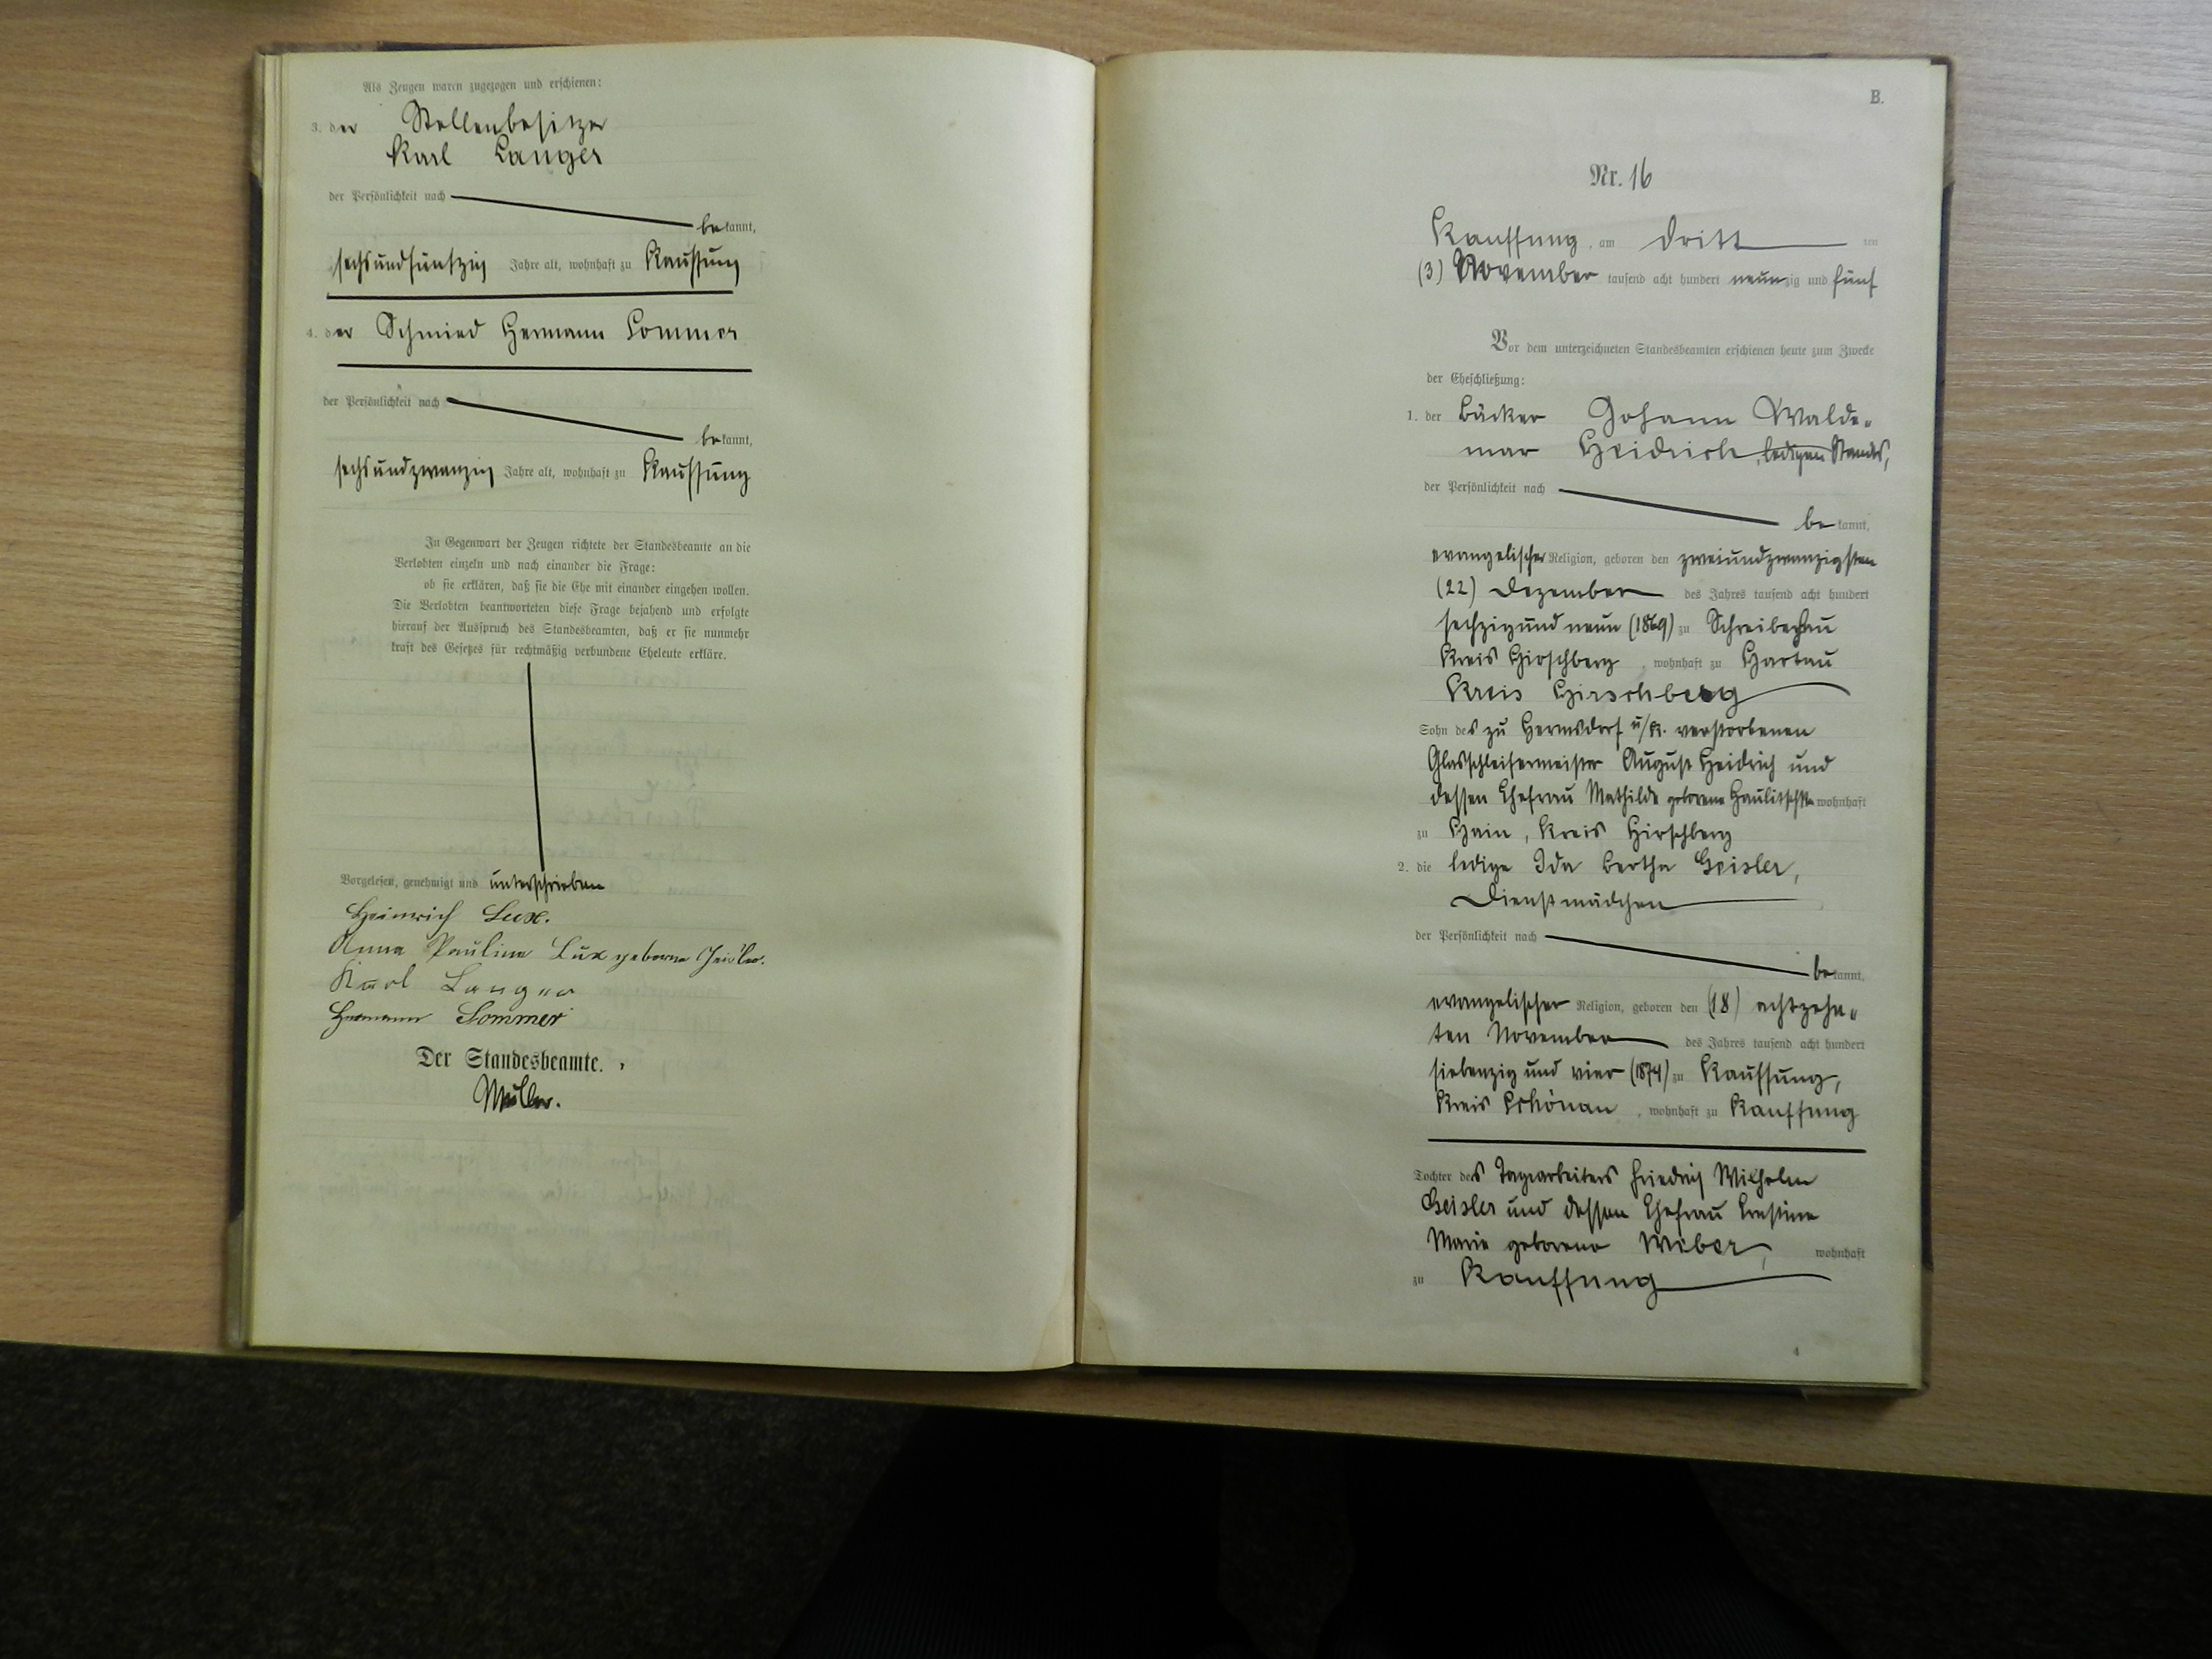 Als Zeugen waren zugezogen und erschienen:
3. der Stellenbesitzer
Karl Langer
der Persönlichkeit nach
bekannt,
sechsundfünfzig Jahre alt, wohnhaft zu Kauffung
4. der Schmied Hermann Sommer
der Persönlichkeit nach
bekannt,
sechsundzwanzig Jahre alt, wohnhaft zu Kauffung
In Gegenwart der Zeugen richtete der Standesbeamte an die
Verlobten einzeln und nach einander die Frage:
ob sie erklären, daß sie die Ehe mit einander eingehen wollen.
Die Verlobten beantworteten diese Frage bejahend und erfolgte
hierauf der Ausspruch des Standesbeamten, daß er sie nunmehr
kraft des Gesetzes für rechtmäßig verbundene Eheleute erkläre.
Vorgelesen, genehmigt und unterschrieben
Heinrich Lux.
Anna Pauline Lux geborene
Karl Langer
Hermann Sommer
Der Standesbeamte.
Müller.
B.
Nr. 16
Kauffung, am dritten
(3) November tausend acht hundert neunzig und fünf
Vor dem unterzeichneten Standesbeamten erschienen heute zum Zwecke
der Eheschließung:
1. der Bäcker Johann Walde-
mar Heidrich, ledigen Stands,
der Persönlichkeit nach
bekannt,
evangelischer Religion, geboren den zweiundzwanzigsten
(22) Dezember des Jahres tausend acht hundert
sechzig und neun (1869) zu Schreiberhau
Kreis Hirschberg, wohnhaft zu Hartau
Kreis Hirschberg
Sohn des zu Hermsdorf u/K. verstorbenen
Glasschleifermeister August Heidrich und
dessen Ehefrau Mathilde geborene wohnhaft
zu Hain, Kreis Hirschberg
2. die ledige Ida Bertha Geisler,
Dienstmädchen
der Persönlichkeit nach
bekannt,
evangelischer Religion, geboren den (18) achtzehn-
ten November des Jahres tausend acht hundert
siebenzig und vier (1874) zu Kauffung,
Kreis Schönau, wohnhaft zu Kauffung
Tochter des Tagearbeiters Friedrich Wilhelm
Geisler und dessen Ehefrau Ernstine
Marie geborene Weber, wohnhaft
zu Kauffung
4